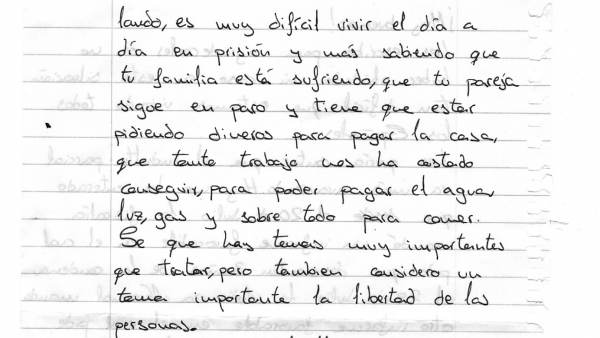 lando, es muy difícil vivir el día a
día en prisión y más sabiendo que
tu familia está sufriendo, que tu pareja
sigue en paro y tiene que estar
pidiendo dineros para pagar la casa,
que tanto trabajo nos ha costado
conseguir, para poder pagar el agua,
luz, gas y sobre todo para comer.
Se que hay temas muy importantes
que tratar, pero tambien considero un
tema importante la libertad de las
personas.